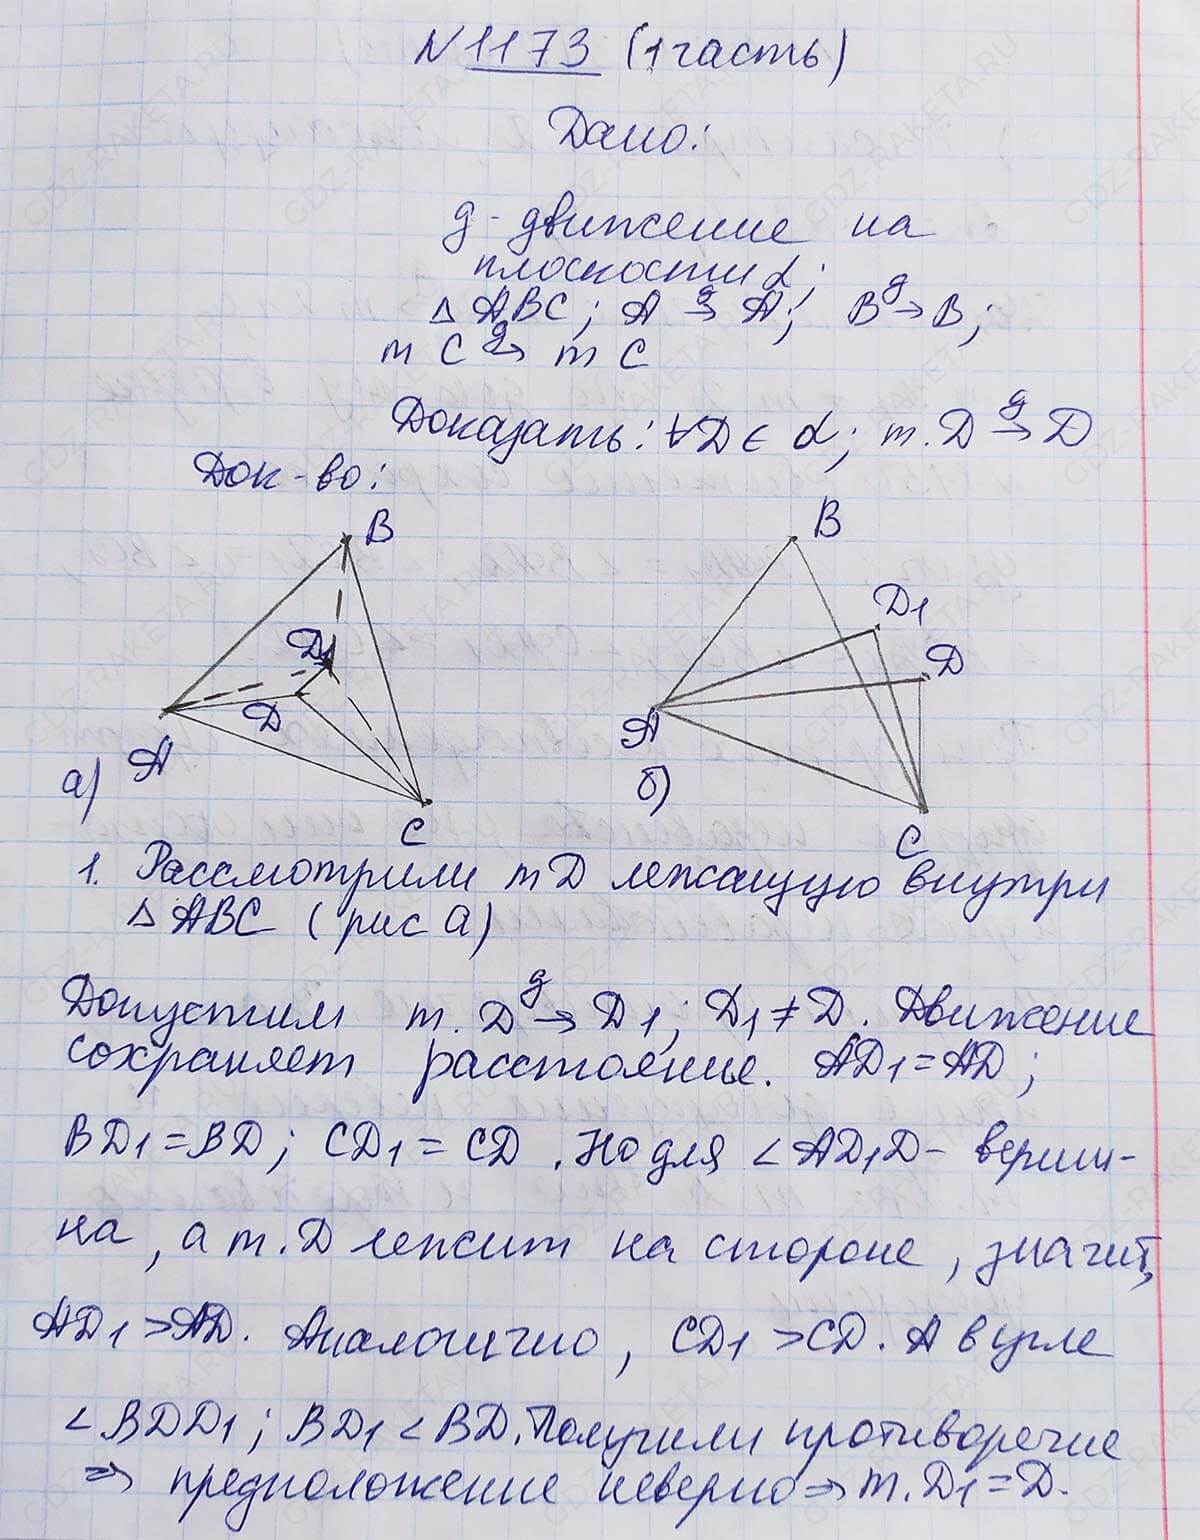 N 1173 (1 часть)
Дано:
g - движение на
плоскости α;
△ ABC; A g→ A; B g→ B;
т C g→ т C
Доказать: ∀D ∈ α; т. D g→ D
Док-во:
B
B
D1
D1
D
D
A
A
а)
б)
C
C
1. Рассмотрили т D лежащую внутри
△ ABC (рис а)
Допустим т. D g→ D1; D1 ≠ D. Движение
сохраняет расстояние. AD1 = AD;
BD1 = BD; CD1 = CD. Но для ∠AD1D - верши-
на, а т. D лежит на стороне, значит,
AD1 > AD. Аналогично, CD1 > CD. А в угле
∠BDD1; BD1 < BD. Получили противоречие
⇒ предположение неверно ⇒ т. D1 = D.
GDZ-RAKETA.RU